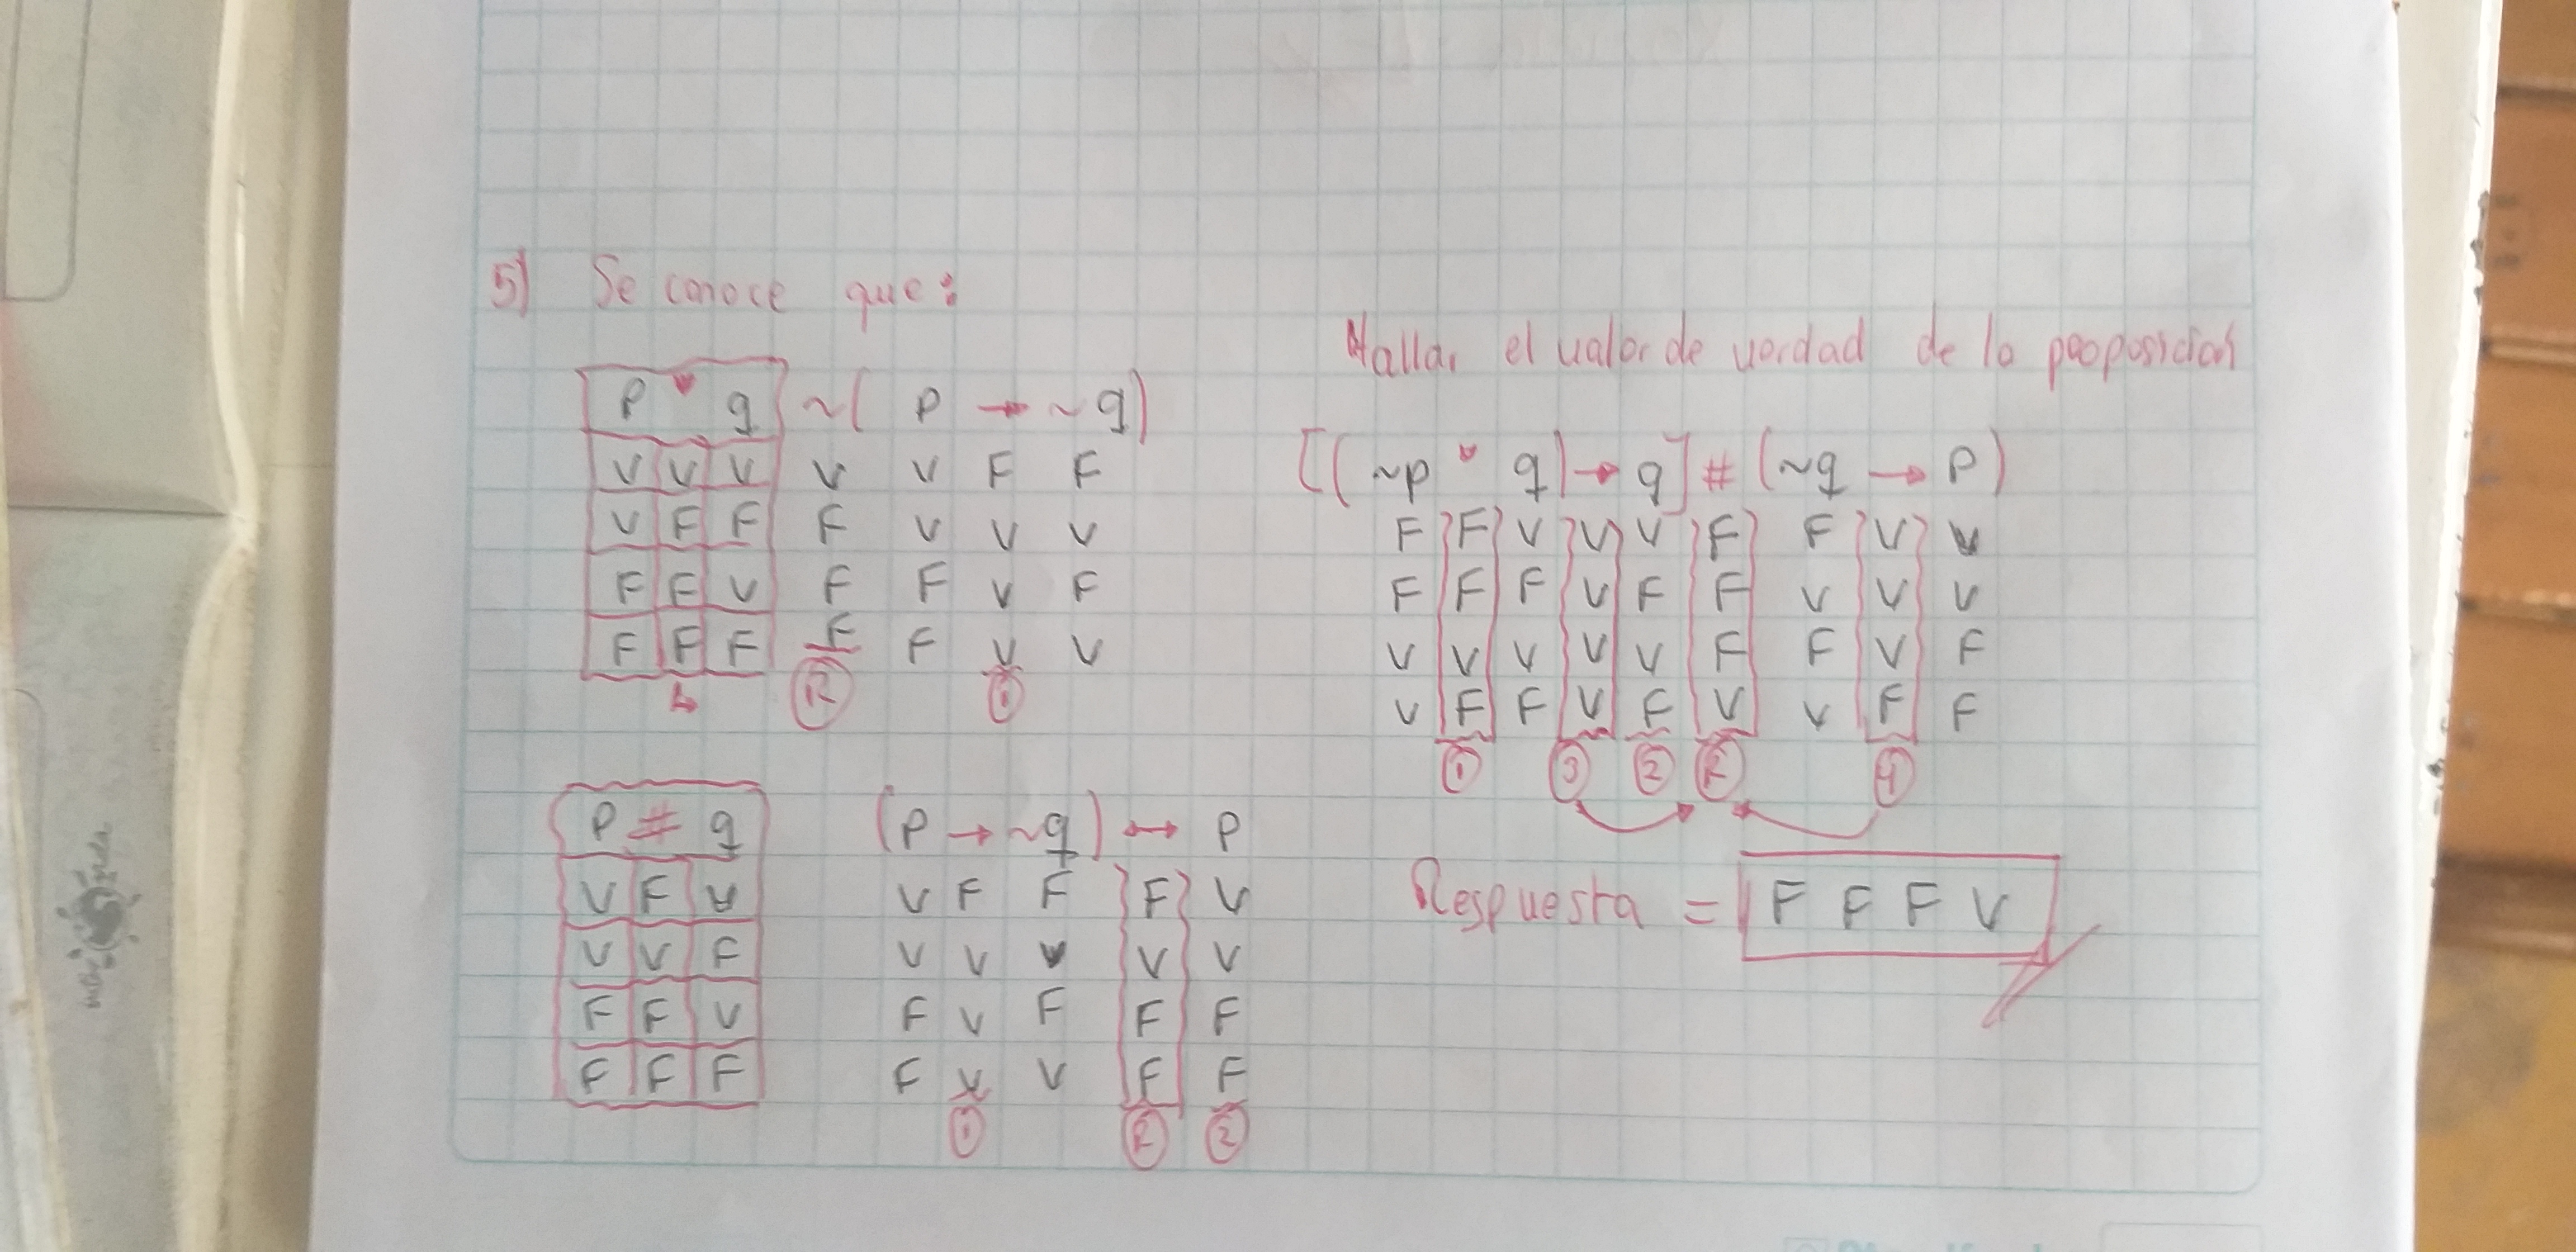 5) Se conoce que:
P * q ~( P → ~q)
V V V V V F F
V F F F V V V
F F V F F V F
F F F F F V V
R 1
P # q (P → ~q) ↔ P
V F V V F F F V
V V F V V V V V
F F V F V F F F
F F F F V V F F
1 R 2
Hallar el valor de verdad de la proposicion
[(~p * q) → q] # (~q → P)
F F V V V F F V V
F F F V F F V V V
V V V V V F F V F
V F F V F V V F F
1 3 2 R 4
Respuesta = F F F V